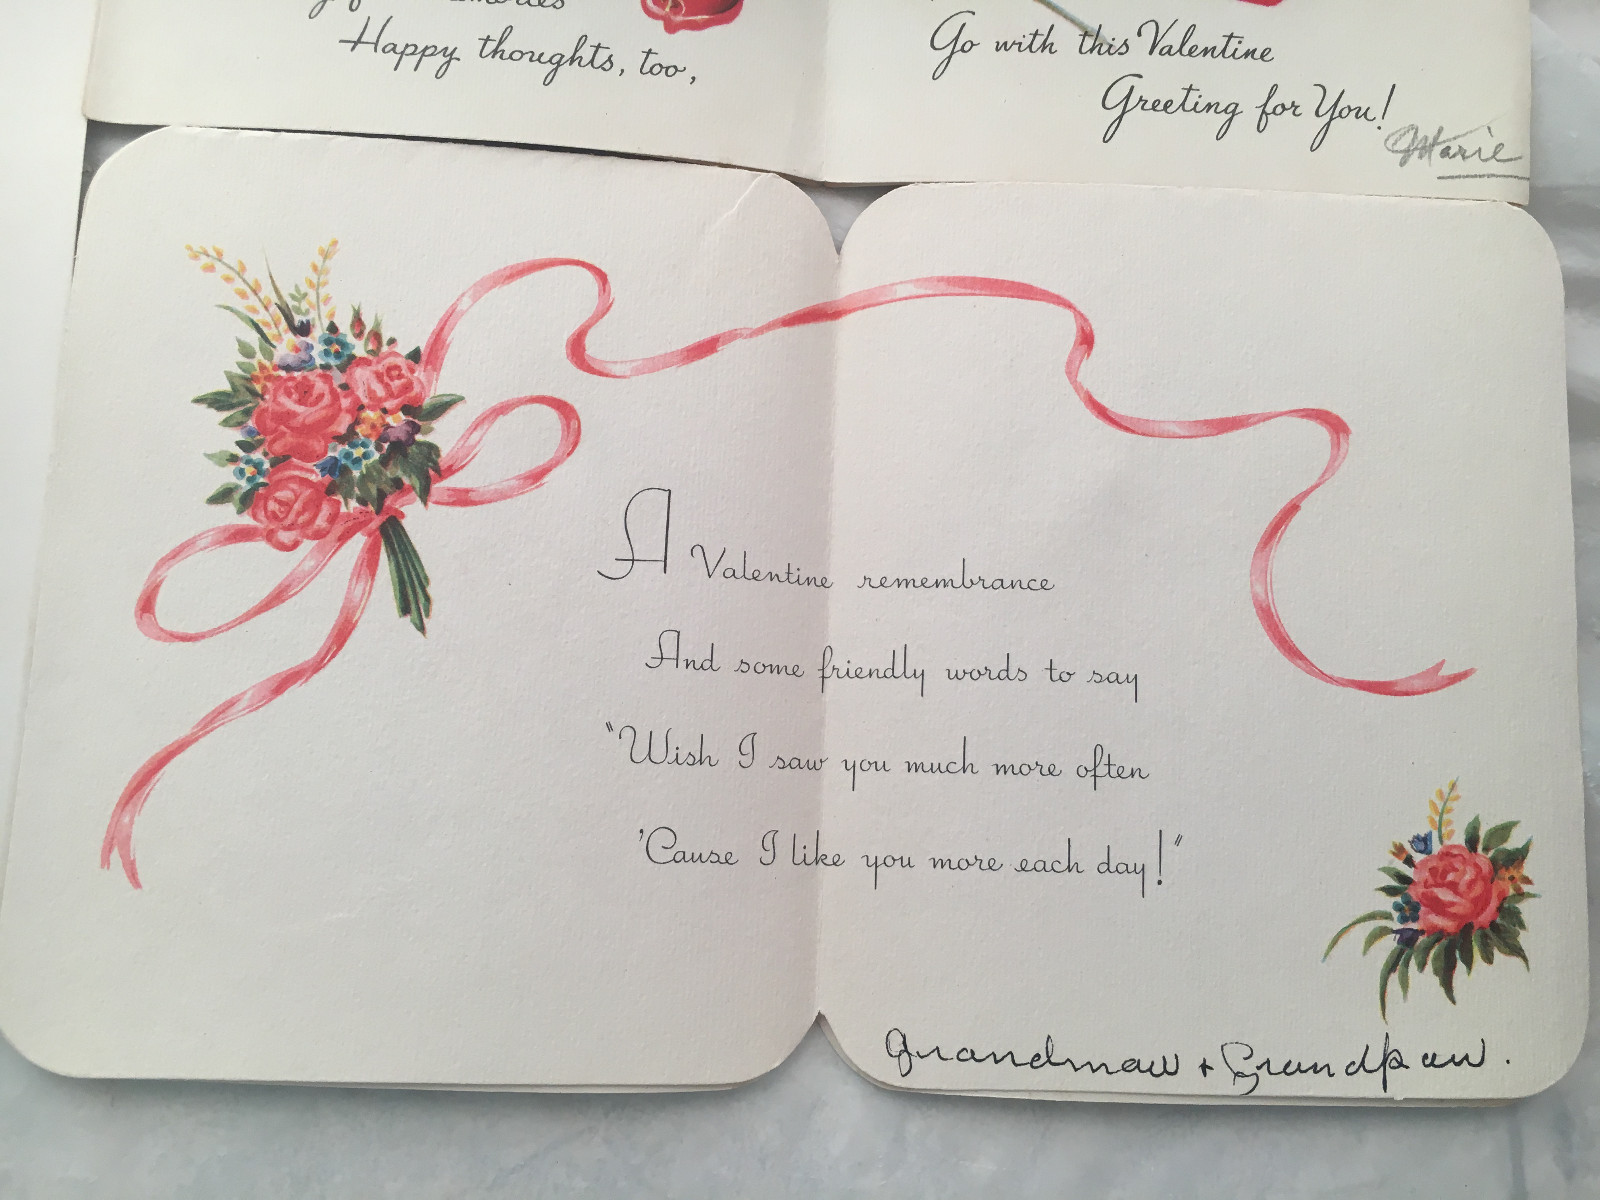 Happy thoughts, too,
Go with this Valentine
Greeting for You!
Marie
A Valentine remembrance
And some friendly words to say
"Wish I saw you much more often
'Cause I like you more each day!"
Grandmaw + Grandpaw.